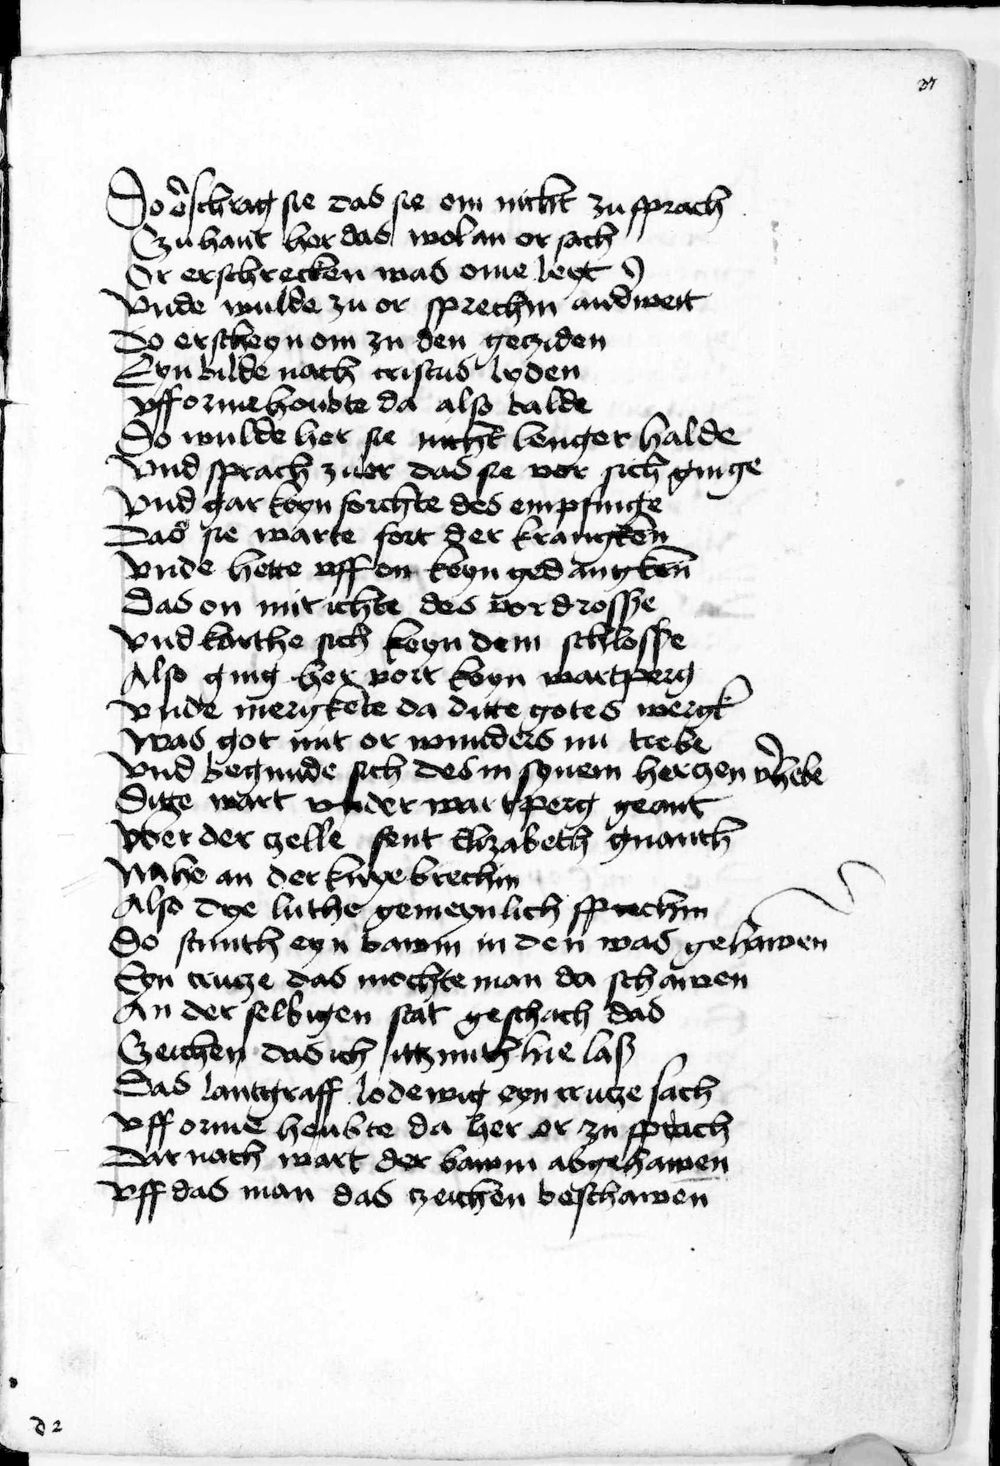 37
Do erschrag sie das sie om nicht zu sprach
Czu hant her das wol an or sach
Or erschrecken was ome leyt
Vnde wulde zu or sprechin andweit
Do erscheyn om zu den geziden
Eyn bilde nach cristus lyden
Vff orme houbte da also balde
Do wulde her sie nicht lenger halde
Vnd sprach zu or das sie vor sich ginge
Vnd gar keyn forchte des empfinge
Das sie warte fort der krangken
Vnde hette vff on keyn gedangken
Das on mit ichte des vordrosse
Vnd karthe sich keyn dem schlosse
Also ging her vort keyn wartperg
Vnde mergkete da ditte gotes wergk
Was got mit or wunders nu trebe
Vnd begunde sich des in synem herczen vrhebe
Ditte wart vnder wartperg geant
Vber der zcelle sent Elizabeth gnanth
Nahe an der knyebrechin
Also dye luthe gemeynlich sprechin
Do stunth eyn bawm in den was gehawen
Eyn crutze das mochte man da schawen
An der selbigen stat geschach das
Zeichen das ich itzunth hie laß
Das lantgraff lodewig eyn crutze sach
Vff orme heubte da her or zu sprach
Dar nach wart der bawm abgehawen
Vff das man das zeichen beschawen
d 2